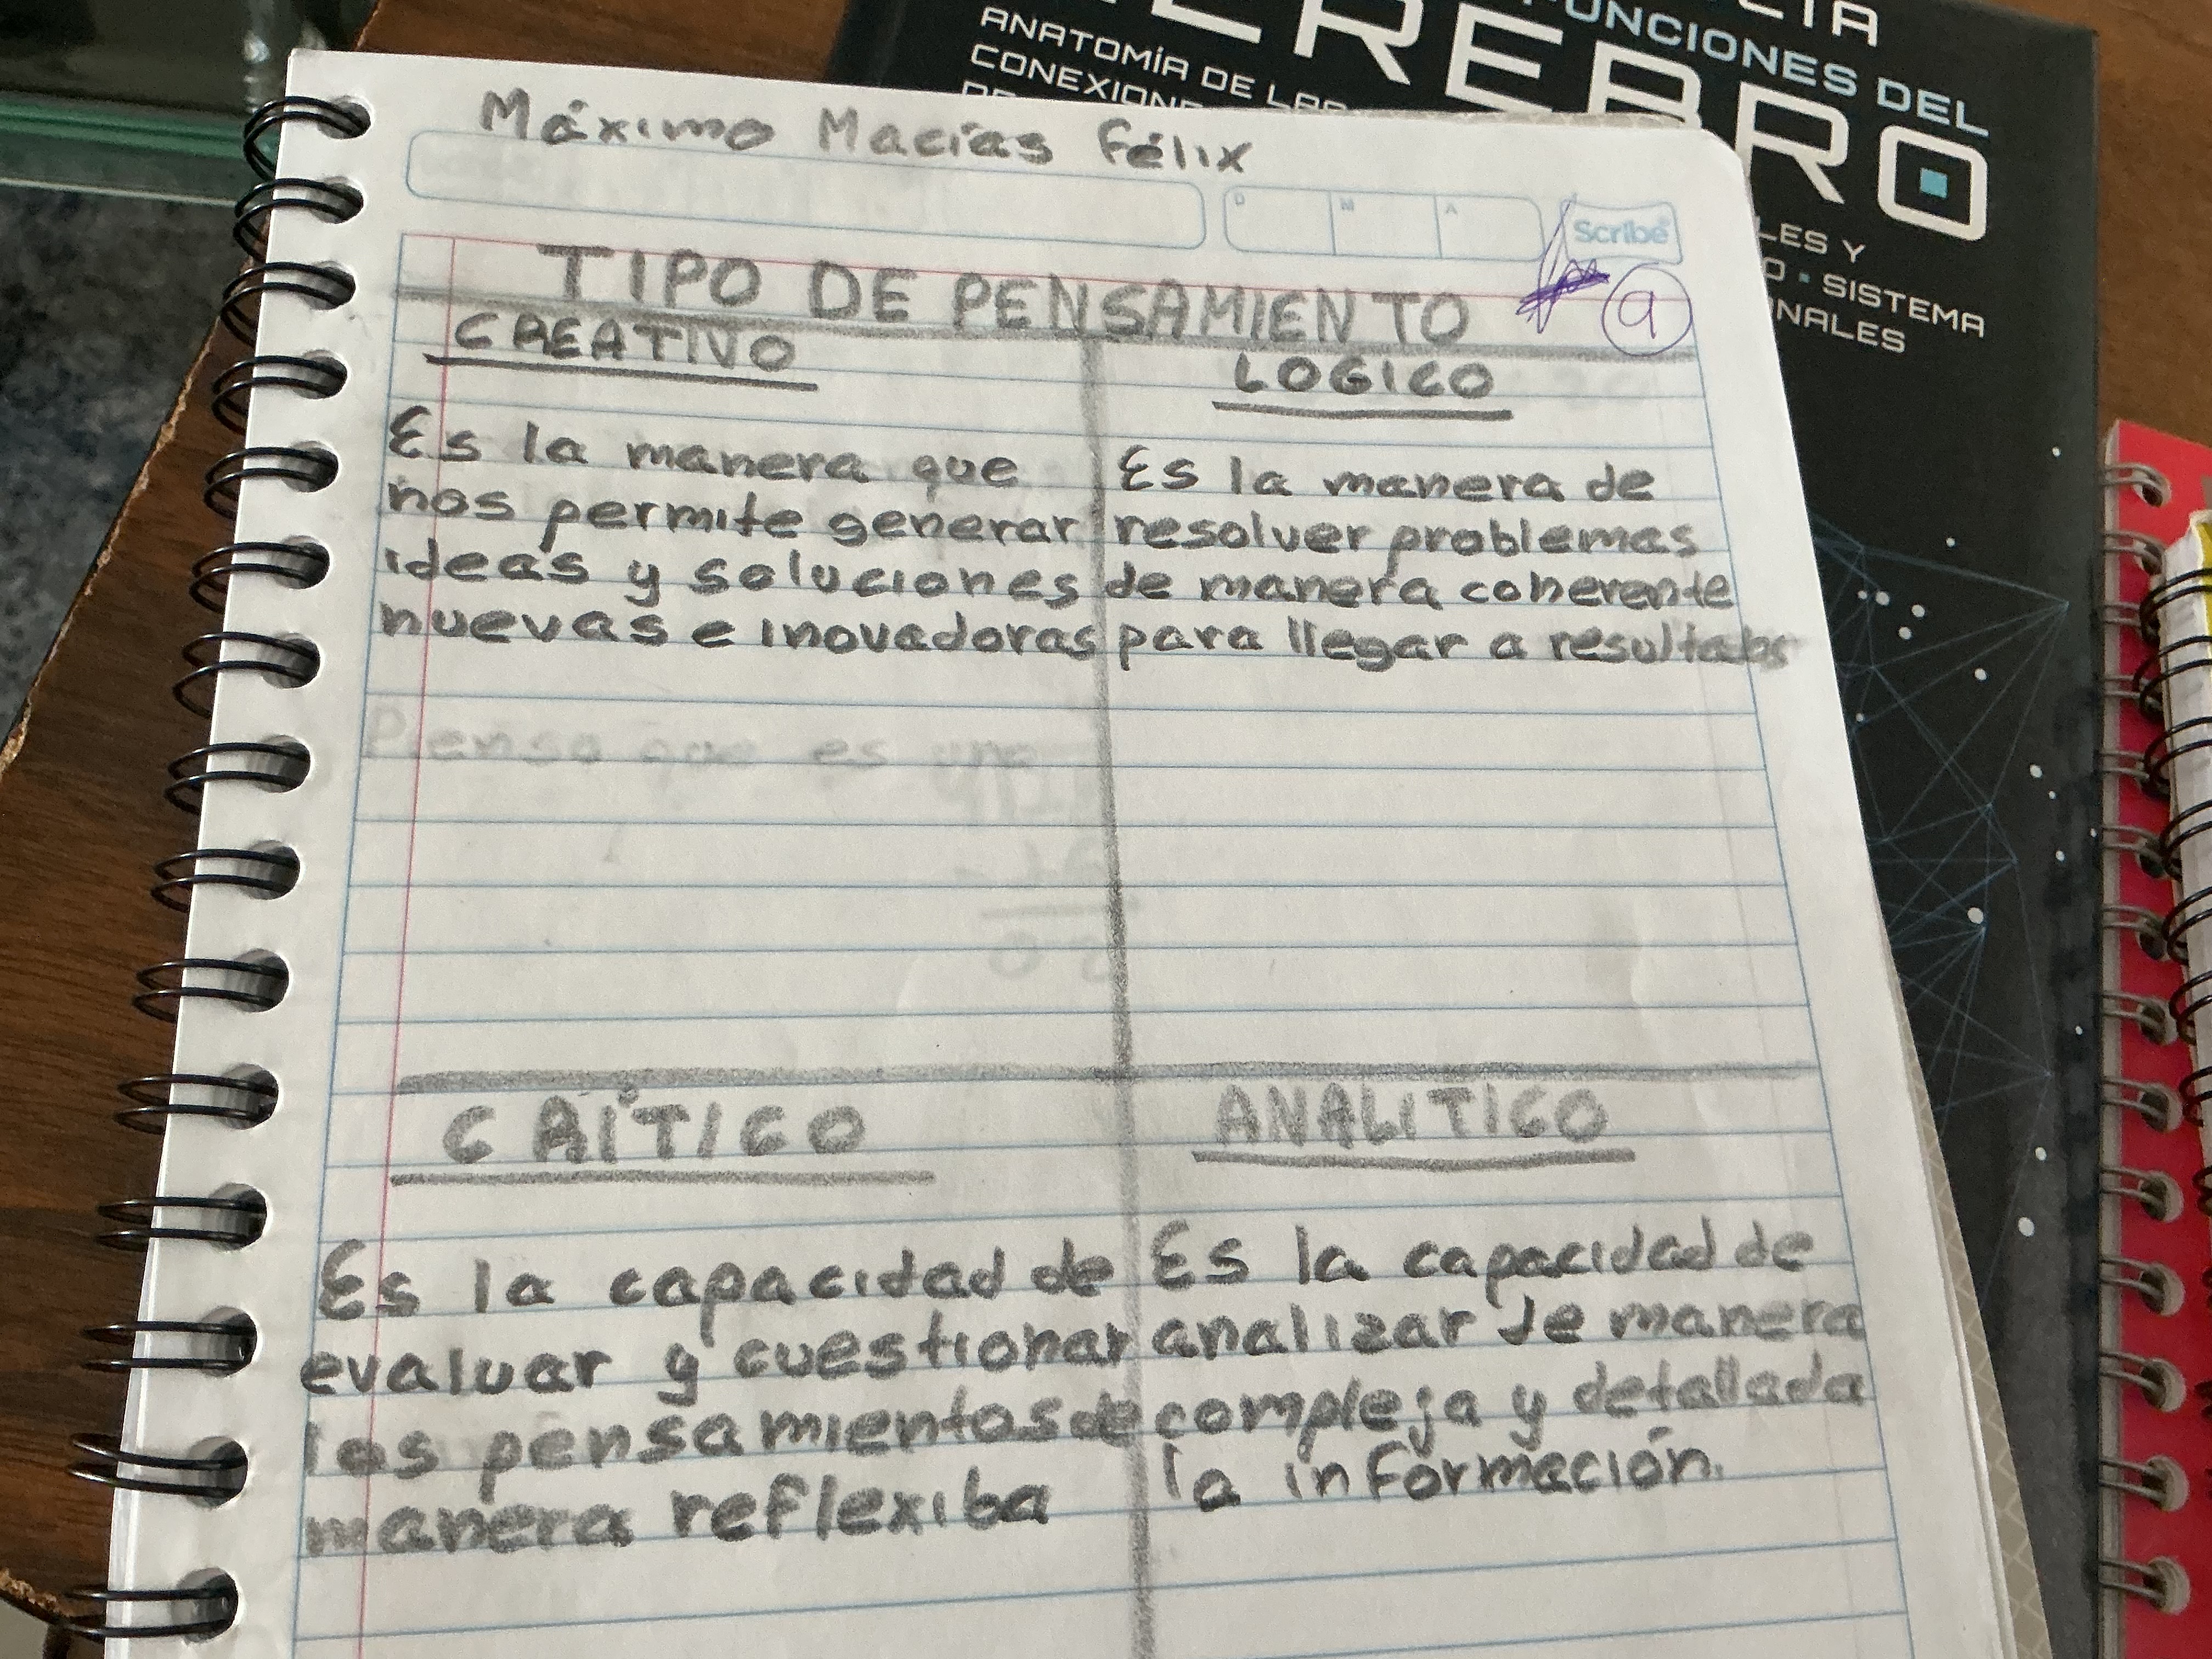 CIA
FUNCIONES DEL
CEREBRO
ANATOMÍA DE LAS
CONEXIONE
LES Y
O · SISTEMA
NALES
Máximo Macías Félix
D M A
Scribe
TIPO DE PENSAMIENTO
9
CREATIVO
Es la manera que
nos permite generar
ideas y soluciones
nuevas e inovadoras
Pienso que es una
LOGICO
Es la manera de
resolver problemas
de manera coherente
para llegar a resultados
CRÍTICO
Es la capacidad de
evaluar y cuestionar
los pensamientos de
manera reflexiba
ANALITICO
Es la capacidad de
analizar de manera
compleja y detallada
la información.